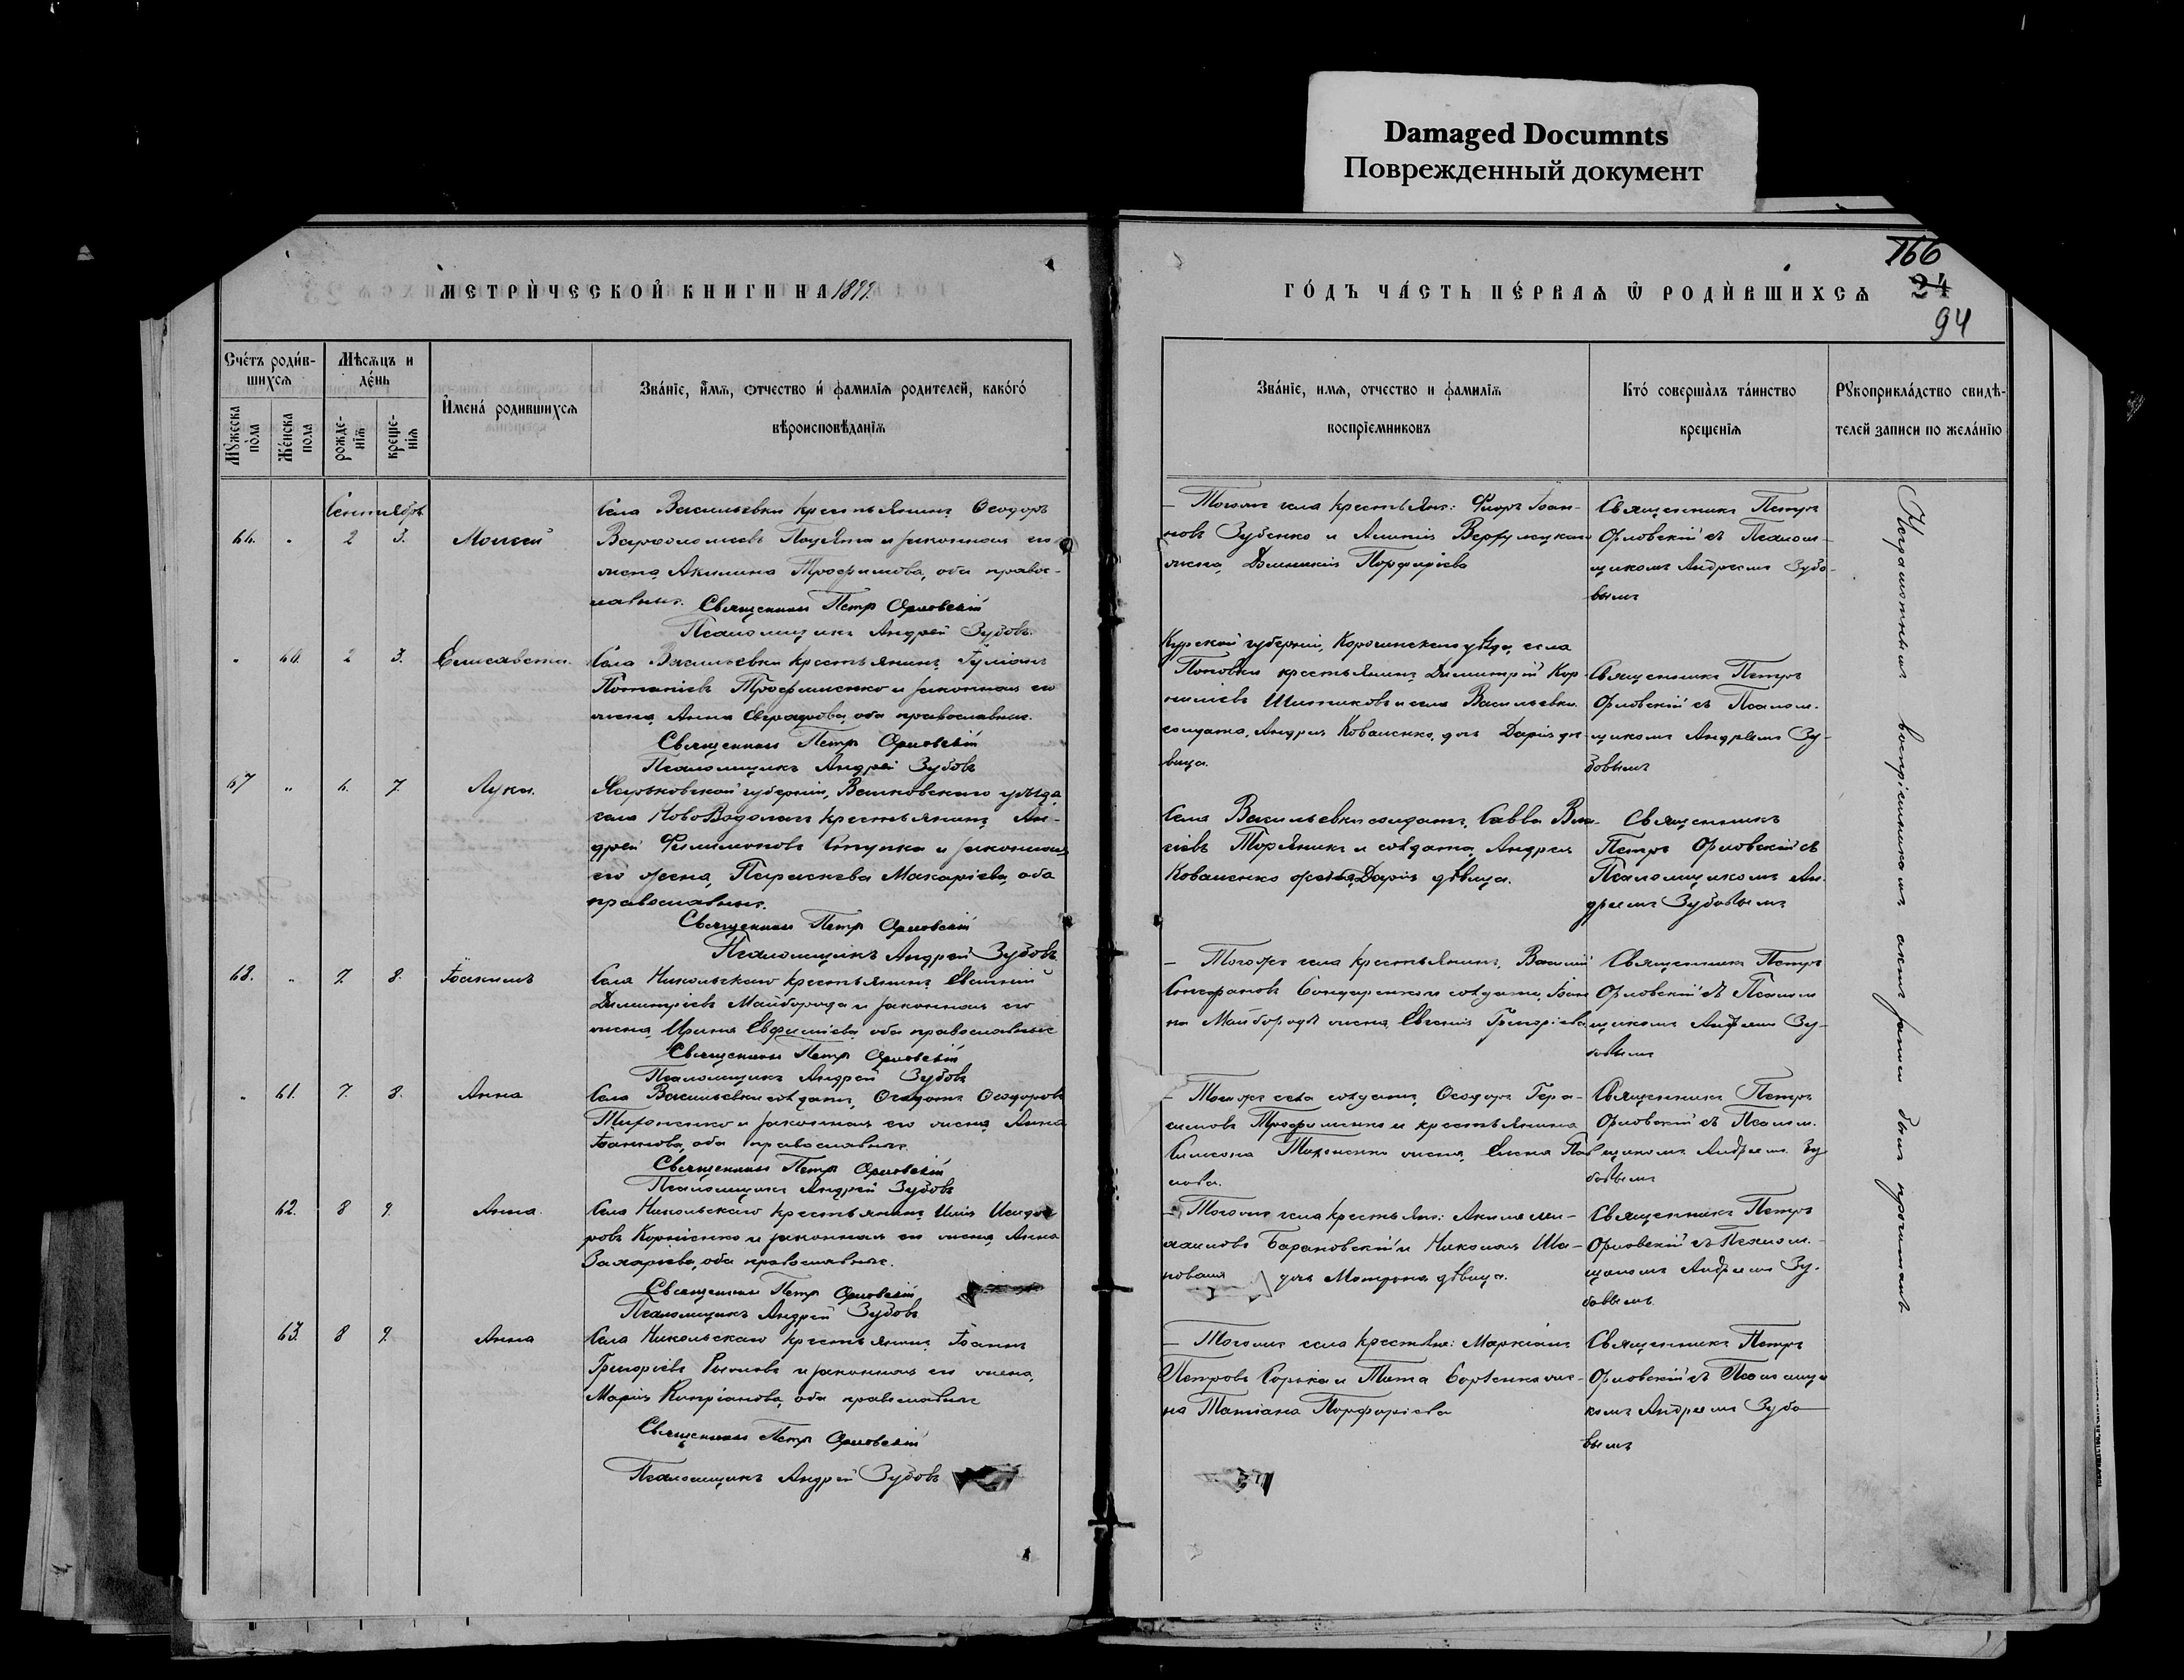 Damaged Documnts
Поврежденный документ
166
24
94
МЕТРИ́ЧЕСКОЙ КНИГИ НА 1899
ГО́ДЪ ЧА́СТЬ ПЕ́РВАѦ Ѿ РОДИ́ВШИХСѦ
Сче́тъ роди́в-
шихсѧ
Мѣсѧцъ и
де́нь
Мꙋжеска
по́ла
Же́нска
пола
рожде-
нїѧ
креще-
нїѧ
Имена́ родившихсѧ
Зва́нїе, и́мѧ, отчество и́ фамилїѧ родителей, како́го́
вѣроисповѣданїѧ
Зва́нїе, имѧ, отчество и фамилїѧ
воспрїемниковъ
Кто́ соверша̀лъ та́инство
крещенїѧ
Рꙋкоприкла́дство свидѣ-
телей записи по жела́нїю
Сентябрь
2 3. Моисей
Села Васильевки крестьянинъ Ѳеодоръ
Варѳоломеевъ и законная его
жена, Акилина Трофимова, оба правос-
лавные. Священникъ Петръ Орловскій
Псаломщикъ Андрей Зубовъ.
Тогоже села крестьян: Флоръ Іоан-
новъ Зубенко и
жена, Порфиріева
Священникъ Петръ
Орловскій съ Псалом-
щикомъ Андреемъ Зубо-
вымъ
2 3. Елисавета.
Села Васильевки крестьянинъ Іуліанъ
Потапіевъ Трофименко и законная его
жена, Анна оба православные.
Священникъ Петръ Орловскій
Псаломщикъ Андрей Зубовъ
Курской губерніи, Корочинскаго уѣзда, села
Поповки крестьянинъ Димитрій Кор-
ниліевъ и села Васильевки
солдата, Андрея Коваленко, дочь Дарія дѣ-
вица.
Священникъ Петръ
Орловскій съ Псалом-
щикомъ Андреемъ Зу-
бовымъ
67 " 6. 7. Лука.
Харьковской губерніи, Валковскаго уѣзда,
села НовоВодолаги крестьянинъ Ан-
дрей Филимоновъ Ступка и законная
его жена, Параскева Макаріева, оба
православные.
Священникъ Петръ Орловскій
Псаломщикъ Андрей Зубовъ.
Села Васильевки солдатъ, Савва
Торяникъ и солдата, Андрея
Коваленко Дарія дѣвица.
Священникъ
Петръ Орловскій съ
Псаломщикомъ Ан-
дреемъ Зубовымъ
68. " 7. 8. Іоакимъ
Села Никольскаго крестьянинъ Евгеній
Димитріевъ Майборода и законная его
жена, Ирина Евфиміева, оба православные
Священникъ Петръ Орловскій
Псаломщикъ Андрей Зубовъ
Тогоже села крестьянинъ, Василій
Стефановъ Бондаренко и солдата, Іоан-
на Майборода жена, Евгенія Григоріева
Священникъ Петръ
Орловскій съ Псалом-
щикомъ Андреемъ Зу-
бовымъ
" 61. 7. 8. Анна
Села Васильевки солдатъ, Ѳеодотъ Ѳеодоровъ
Тихоненко и законная его жена, Анна
Іоаннова, оба православные.
Священникъ Петръ Орловскій
Псаломщикъ Андрей Зубовъ
Тогоже села солдатъ, Ѳеодоръ Гера-
симовъ Трофименко и крестьянина
Симеона Тихоненко жена, Елена Пав-
лова.
Священникъ Петръ
Орловскій съ Псалом-
щикомъ Андреемъ Зу-
бовымъ
62. 8 9. Анна
Села Никольскаго крестьянинъ Илія Исидо-
ровъ Корніенко и законная его жена, Анна
Захаріева, оба православные.
Священникъ Петръ Орловскій
Псаломщикъ Андрей Зубовъ
Тогоже села крестьян:
Барановскій и Николая Ша-
повала дочь Матрона дѣвица.
Священникъ Петръ
Орловскій съ Псалом-
щикомъ Андреемъ Зу-
бовымъ.
63. 8 9. Анна
Села Никольскаго крестьянинъ Іоаннъ
Григоріевъ и законная его жена,
Марія Кипріанова, оба православные
Священникъ Петръ Орловскій
Псаломщикъ Андрей Зубовъ
Тогоже села крестьян: Маркіанъ
Петровъ Горька и Тита же-
на Татіана Порфиріева
Священникъ Петръ
Орловскій съ Псаломщи-
комъ Андреемъ Зубо-
вымъ
воспріемникамъ актъ записи былъ прочитанъ